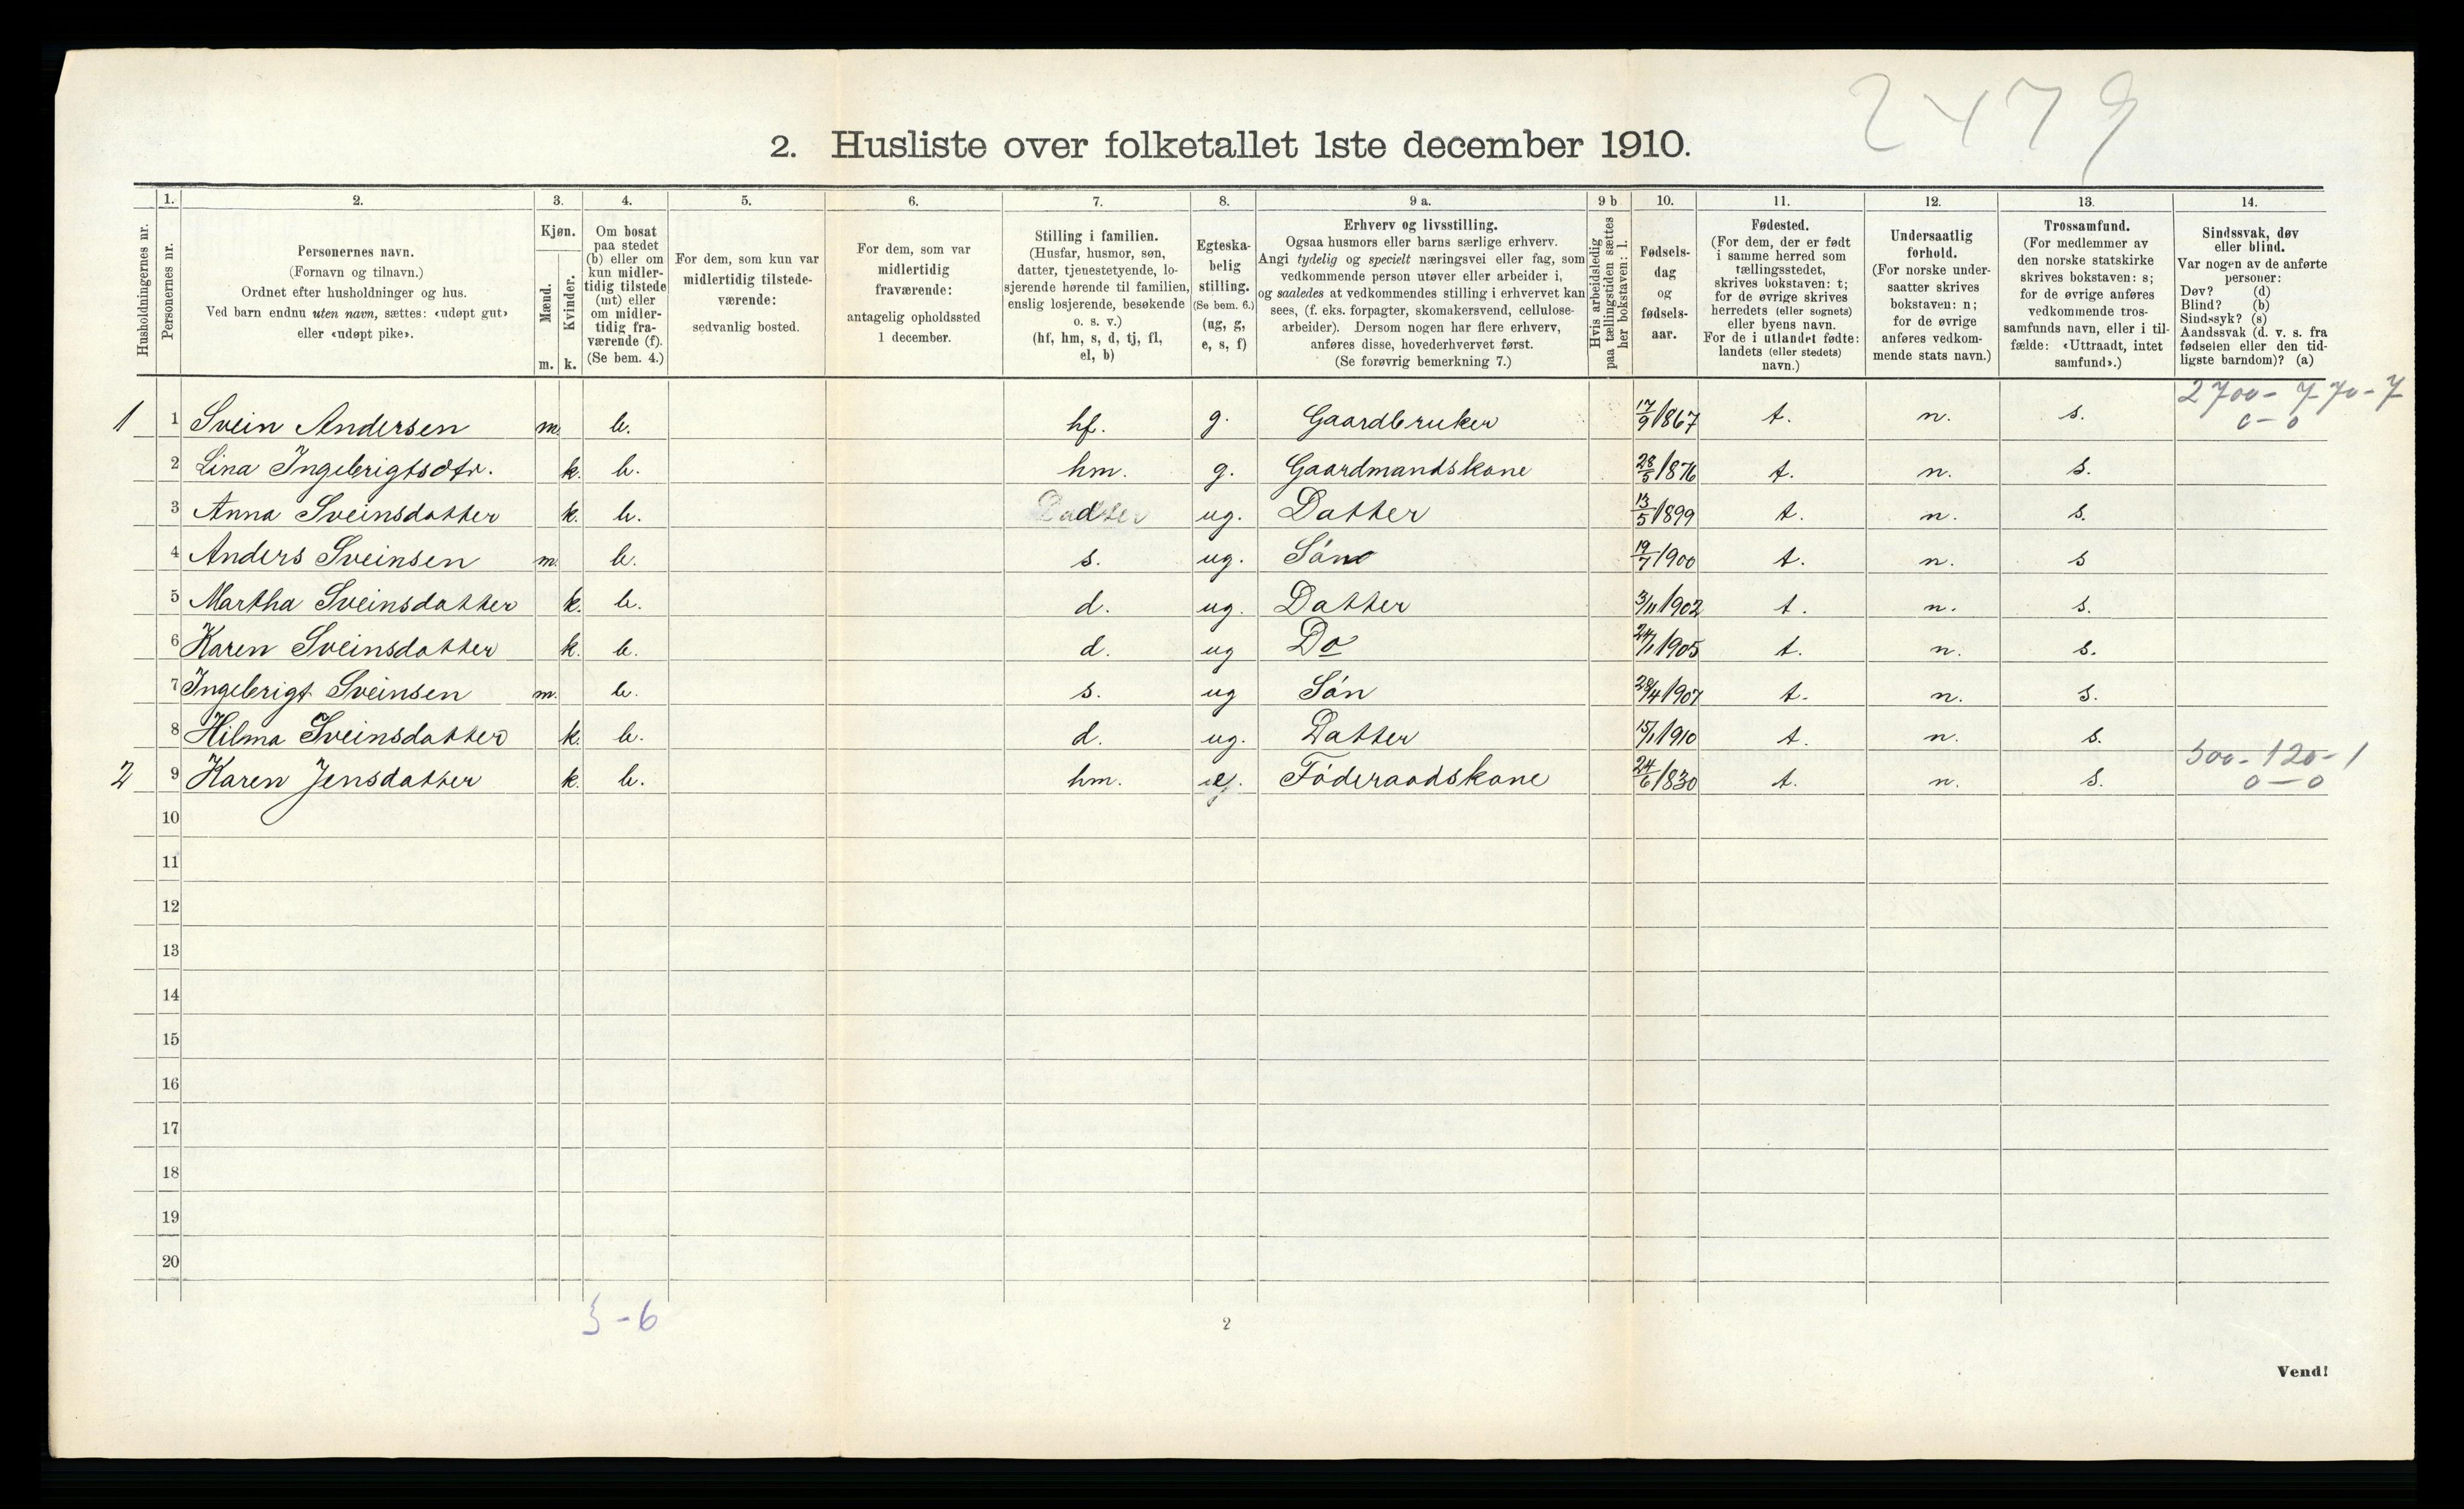 2479
2. Husliste over folketallet 1ste december 1910.
Husholdningernes nr.
1. Personernes nr.
2. Personernes navn.
(Fornavn og tilnavn.)
Ordnet efter husholdninger og hus.
Ved barn endnu uten navn, sættes: «udøpt gut»
eller «udøpt pike».
3. Kjøn.
Mænd. m.
Kvinder. k.
4. Om bosat
paa stedet
(b) eller om
kun midler-
tidig tilstede
(mt) eller
om midler-
tidig fra-
værende (f).
(Se bem. 4.)
5. For dem, som kun var
midlertidig tilstede-
værende:
sedvanlig bosted.
6. For dem, som var
midlertidig
fraværende:
antagelig opholdssted
1 december.
7. Stilling i familien.
(Husfar, husmor, søn,
datter, tjenestetyende, lo-
sjerende hørende til familien,
enslig losjerende, besøkende
o. s. v.)
(hf, hm, s, d, tj, fl,
el, b)
8. Egteska-
belig
stilling.
(Se bem. 6.)
(ug, g,
e, s, f)
9 a. Erhverv og livsstilling.
Ogsaa husmors eller barns særlige erhverv.
Angi tydelig og specielt næringsvei eller fag, som
vedkommende person utøver eller arbeider i,
og saaledes at vedkommendes stilling i erhvervet kan
sees, (f. eks. forpagter, skomakersvend, cellulose-
arbeider). Dersom nogen har flere erhverv,
anføres disse, hovederhvervet først.
(Se forøvrig bemerkning 7.)
9 b Hvis arbeidsledig
paa tællingstiden sættes
her bokstaven: l.
10. Fødsels-
dag
og
fødsels-
aar.
11. Fødested.
(For dem, der er født
i samme herred som
tællingsstedet,
skrives bokstaven: t;
for de øvrige skrives
herredets (eller sognets)
eller byens navn.
For de i utlandet fødte:
landets (eller stedets)
navn.)
12. Undersaatlig
forhold.
(For norske under-
saatter skrives
bokstaven: n;
for de øvrige
anføres vedkom-
mende stats navn.)
13. Trossamfund.
(For medlemmer av
den norske statskirke
skrives bokstaven: s;
for de øvrige anføres
vedkommende tros-
samfunds navn, eller i til-
fælde: «Uttraadt, intet
samfund».)
14. Sindssvak, døv
eller blind.
Var nogen av de anførte
personer:
Døv? (d)
Blind? (b)
Sindssyk? (s)
Aandssvak (d. v. s. fra
fødselen eller den tid-
ligste barndom)? (a)
2700-770-7
1 1 Svein Andersen m. b. hf. g. Gaardbruker 17/9 1867 t. n. s. 0-0
2 Lina Ingebrigtsdtr. k. b. hm. g. Gaardmandskone 28/5 1876 t. n. s.
3 Anna Sveinsdatter k. b. Dadter ug. Datter 13/5 1899 t. n. s.
4 Anders Sveinsen m. b. s. ug. Søn 19/7 1900 t. n. s
5 Martha Sveinsdatter k. b. d. ug. Datter 3/11 1902 t. n. s.
6 Karen Sveinsdatter k. b. d. ug Do 24/1 1905 t. n. s.
7 Ingebrigt Sveinsen m. b. s. ug Søn 28/4 1907 t. n. s.
8 Hilma Sveinsdatter k. b. d. ug. Datter 15/1 1910 t. n. s.
500-120-1
2 9 Karen Jensdatter k. b. hm. e. Føderaadskone 24/6 1830 t. n. s. 0-0
10
11
12
13
14
15
16
17
18
19
20
3-6
2
Vend!